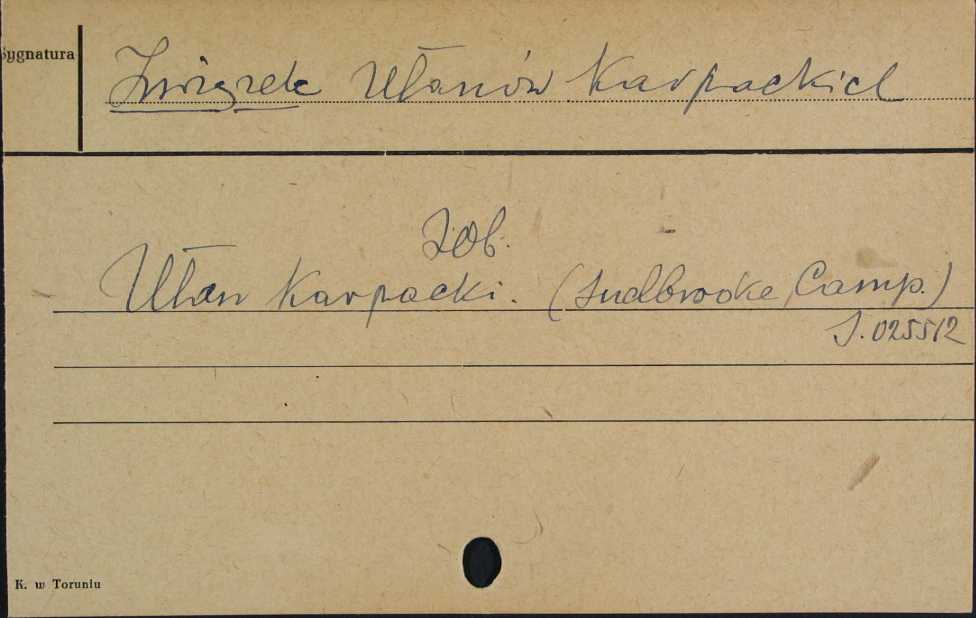 Sygnatura
Związek Ułanów Karpackich
Zob.
Ułan Karpacki. (Sudbrooke Camp.)
J. 025512
K. w Toruniu